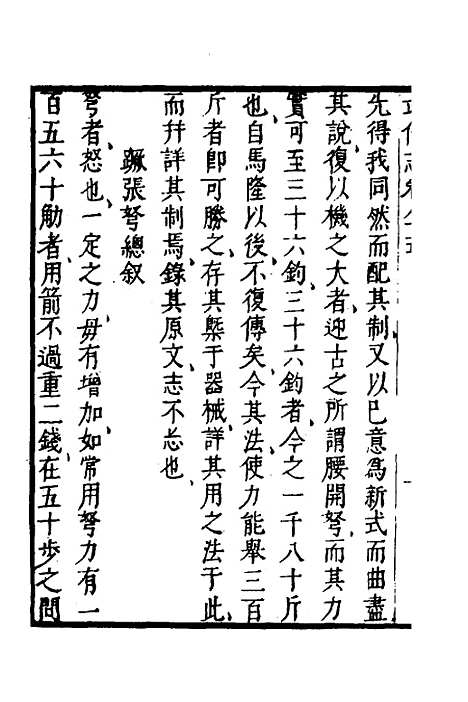 先得我同然而配其制又以巳意爲新式而曲盡
其說復以機之大者迎古之所謂腰開弩而其力
實可至三十六鈞三十六鈞者今之一千八十斤
也自馬隆以後不復傳矣今其法使力能舉三百
斤者卽可勝之存其槩于器械詳其用之法于此
而幷詳其制焉錄其原文志不忘也
蹶張弩總叙
弩者怒也一定之力毋有增加如常用弩力有一
百五六十觔者用箭不過重二錢在五十步之間